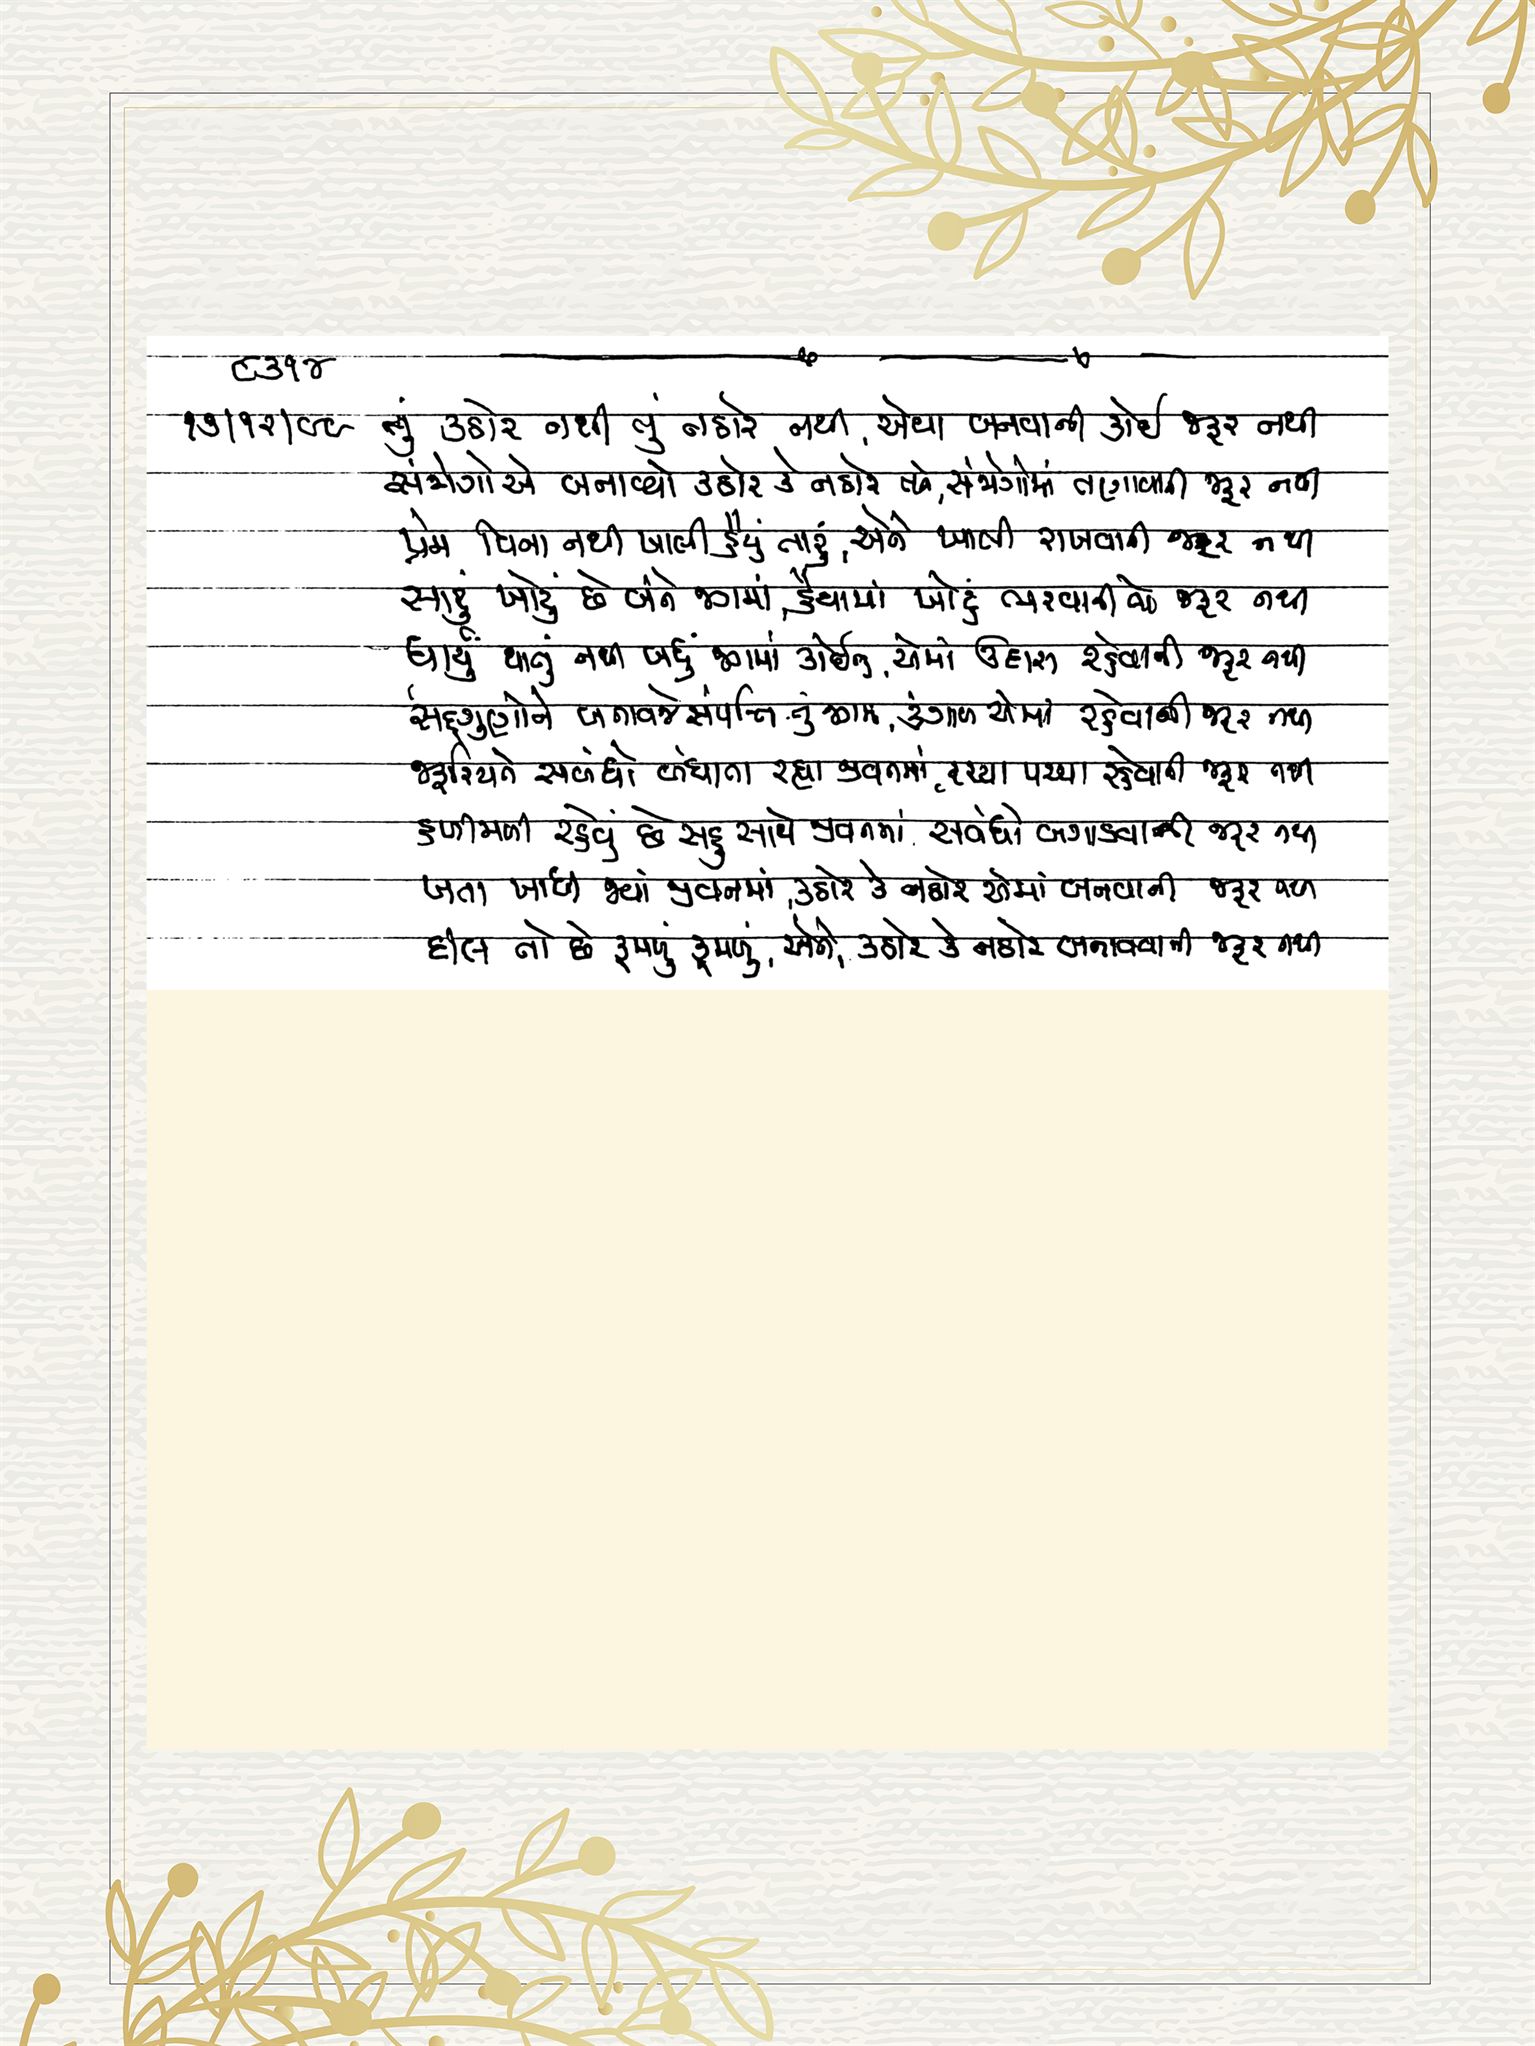 ૮૩૧૪
૧૭/૧૨/૯૯ તું કઠોર નથી તું નઠોર નથી, એવા બનવાની કોઈ જરૂર નથી
સંજોગોએ બનાવ્યો કઠોર કે નઠોર તને, સંજોગોમાં તણાવાની જરૂર નથી
પ્રેમ વિના નથી ખાલી હૈયું તારું, એને ખાલી રાખવાની જરૂર નથી
સારું ખોટું છે બંને જગમાં, હૈયામાં ખોટું ભરવાની જરૂર નથી
ધાર્યું થાતું નથી બધું જગમાં કોઈનું, એમાં ઉદાસ રહેવાની જરૂર નથી
સદ્દગુણોને બનાવજે સંપત્તિ તું જગમાં, કંગાળ એમાં રહેવાની જરૂર નથી
જરૂરિયાતે સબંધો બંધાતા રહ્યા જીવનમાં, રચ્યા પચ્યા રહેવાની જરૂર નથી
હળીમળી રહેવું છે સહુ સાથે જીવનમાં, સબંધો બગાડવાની જરૂર નથી
ખતા ખાધી જ્યાં જીવનમાં, કઠોર કે નઠોર એમાં બનવાની જરૂર નથી
દીલ તો છે કૂમળું કૂમળું, એને, કઠોર કે નઠોર બનાવવાની જરૂર નથી